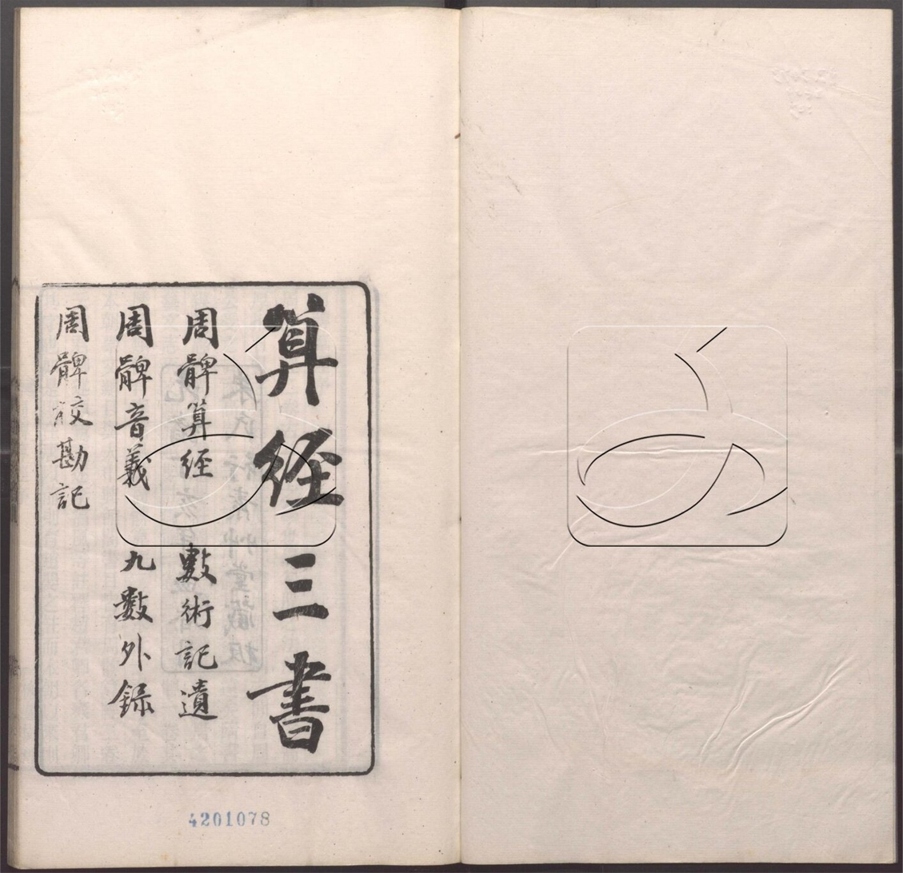 算经三書
周髀算经 數術記遺
周髀音義 九數外録
周髀校勘記
4201078